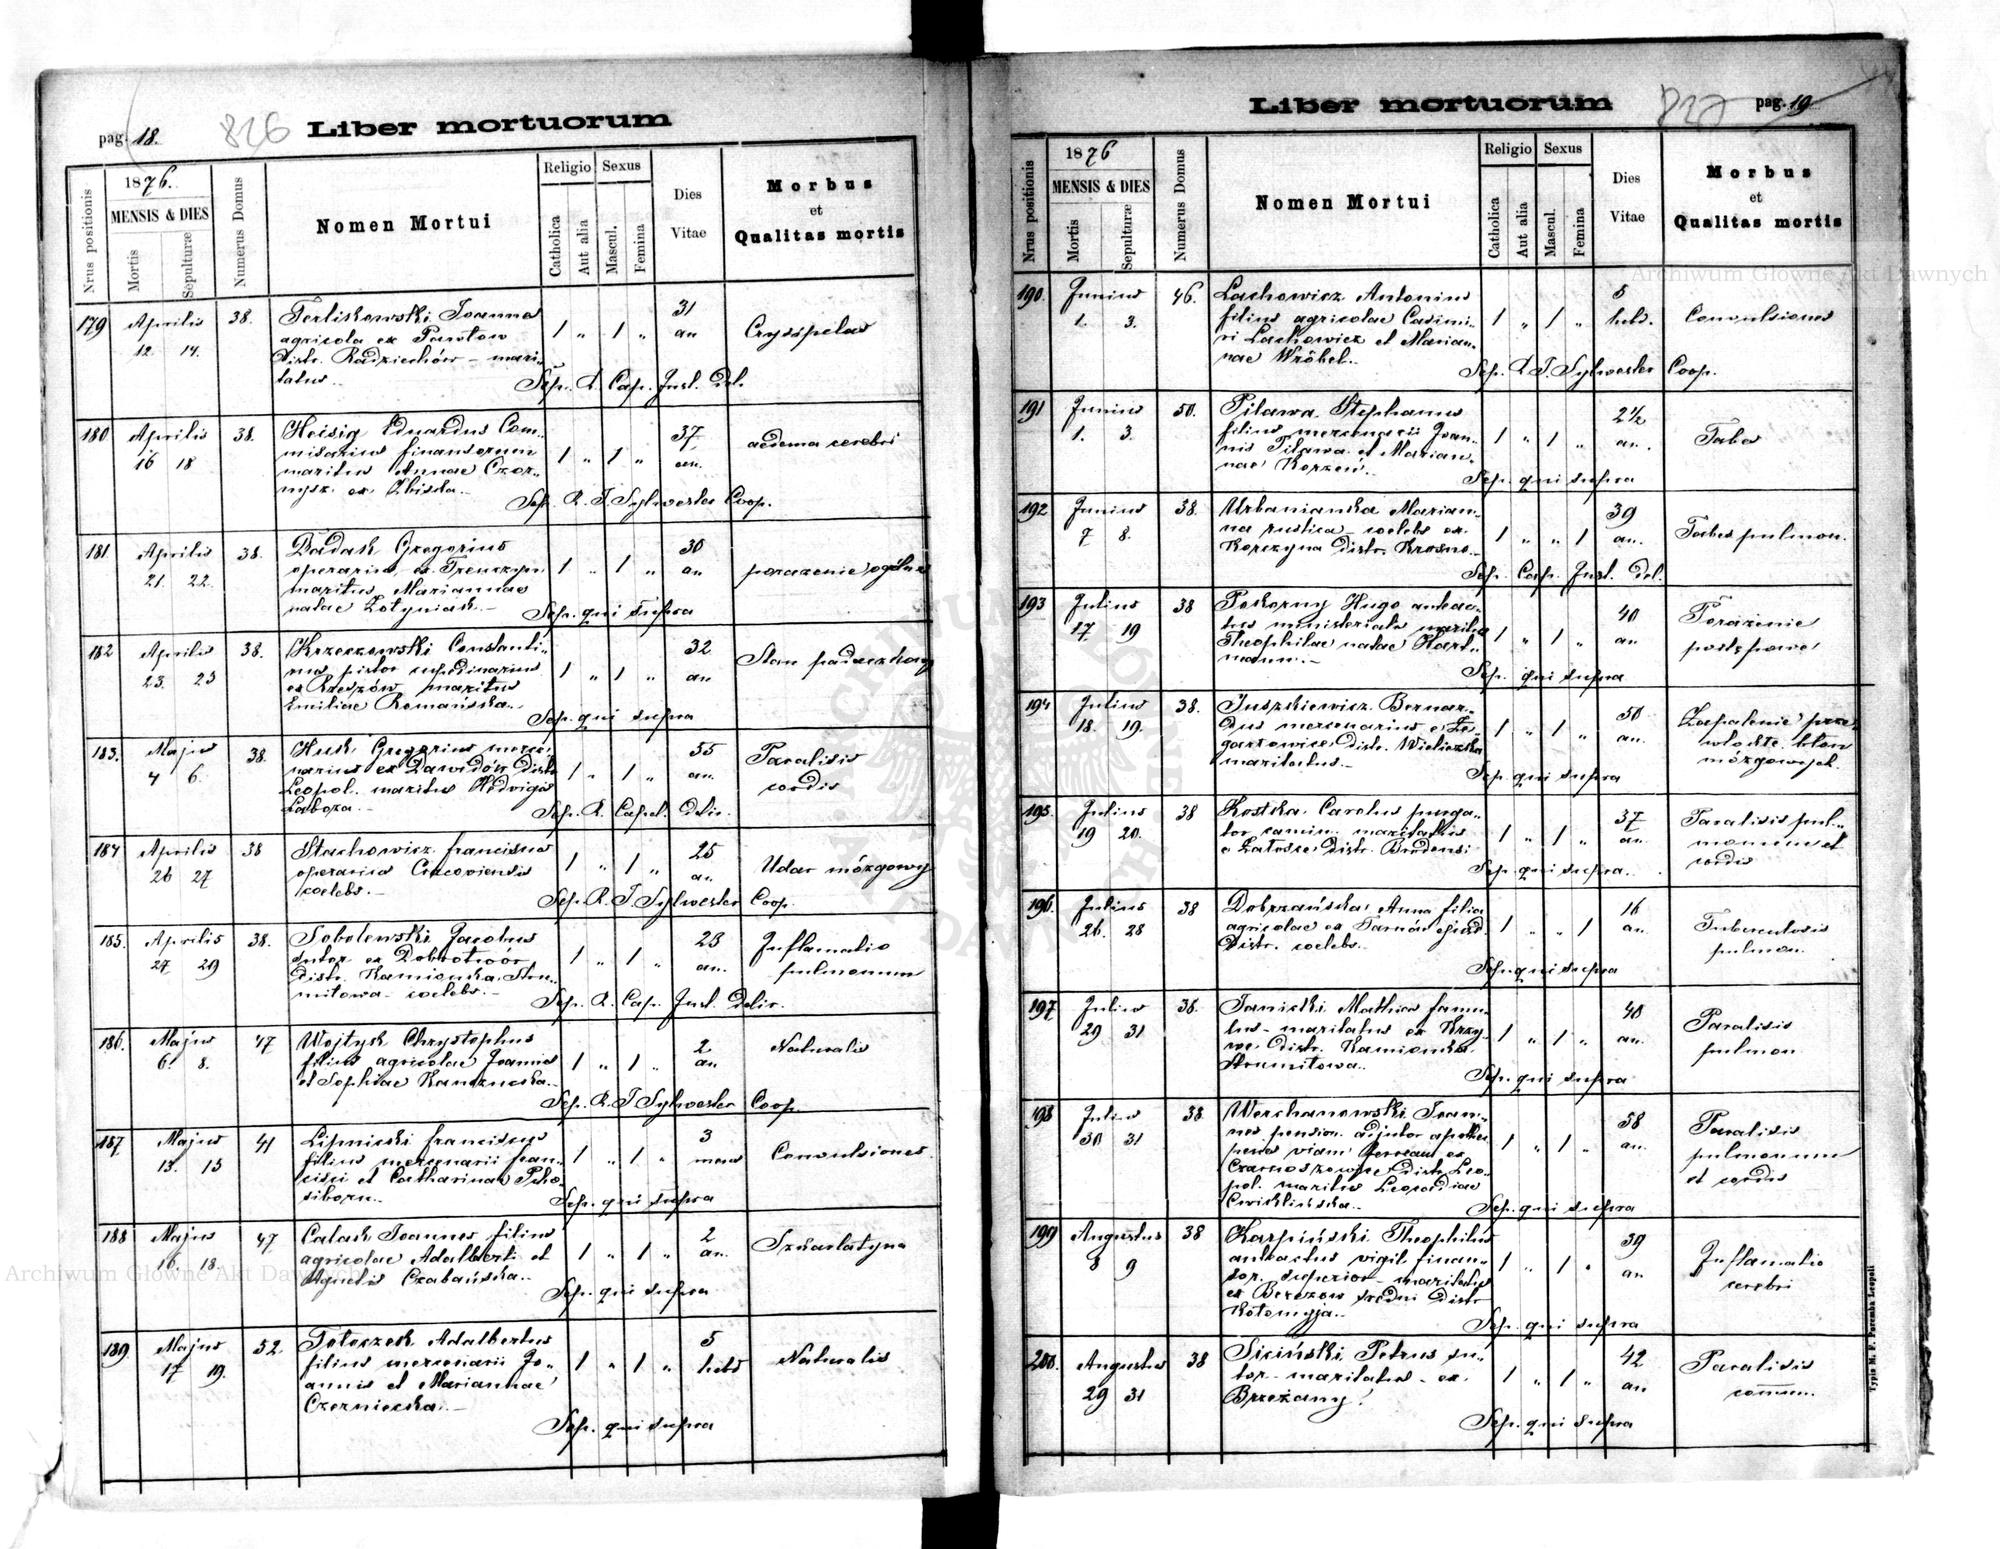 pag. 18.
826
Liber mortuorum
Nrus positionis
1876.
MENSIS & DIES
Mortis
Sepulturæ
Numerus Domus
Nomen Mortui
Religio
Sexus
Catholica
Aut alia
Mascul.
Femina
Dies
Vitae
Morbus
et
Qualitas mortis
179 Aprilis 38. Terliskowski Joannes 31
12 14. agricola ex Pawłow 1 „ 1 „ an Erysipelas
Distr. Radziechów – mari
tatus.. Sep. R. Cap. Inst. Del.
180. Aprilis 38. Heisig Eduardus Com 37 aedema cerebri
16 18 misarius finansorum 1 „ 1 „ an.
maritus Annae Czer
ex Sep. R. T. Sylwester Coop.
181 Aprilis 38. Badak Gregorius 30
21. 22. operarius ex Trenczyn 1 „ 1 „ an porazenie ogólne
maritus Mariannae
natae Zotyniak.– Sep. qui supra
182 Aprilis 38. Krzeczowski Constanti 32 Stan padaczkowy
23. 25 nus pistor cupedinarius 1 „ 1 „ an
ex Rzeszów maritus
Emiliae Romańska.. Sep. qui supra
183. Majus 38. Husk Gregorius merce 55 Paralisis
4 6. narius ex Dawidów Distr 1 „ 1 „ an. cordis
Leopol. maritus Hedvigae
Laboza.– Sep. R. Capel. Delir.
184 Aprilis 38 Stachowicz Franciscus 25
26 27 operarius Cracoviensis 1 „ 1 „ an. Udar mózgowy
coelebs.– Sep. R. T. Sylwester Coop.
185. Aprilis 38. Sobolewski Jacobus 23 Inflamatio
27 29 sutor ex Dobrotwór 1 „ 1 „ an. pulmonum
Distr. Kamionka Stru
mitowa – coelebs.– Sep. R. Cap. Inst. Delir.
186. Majus 47 Wojtysk Chrystophus 2 Naturalis
6. 8. filius agricolae Joannis 1 „ 1 „ an
et Sophiae
Sep. R. T Sylwester Coop.
187. Majus 41 Lipnicki Franciscus 3
13. 15 filius mercenarii Fran 1 „ 1 „ mens Convulsiones.
cisci et Catharinae
Sep. qui supra
188 Majus 47 Calask Joannes filius 2
16. 18. agricolae Adalberti et 1 „ 1 „ an. Szkarlatyna
Agnetis Czabańska..
Sep. qui supra
189. Majus 52. Toteczek Adalbertus 5
17 19. filius mercenarii Jo 1 „ 1 „ hebd Naturalis
annis et Mariannae
Czerniecka.–
Sep. qui supra
Liber mortuorum
827
pag. 19
Nrus positionis
1876
MENSIS & DIES
Mortis
Sepulturæ
Numerus Domus
Nomen Mortui
Religio
Sexus
Catholica
Aut alia
Mascul.
Femina
Dies
Vitae
Morbus
et
Qualitas mortis
190. Junius 46. Lachowicz Antonius 5
1. 3. filius agricolae Casimi 1 „ 1 „ hebd. Convulsiones
ri Lachowicz et Marian
nae Wróbel.. Sep. R T. Sylwester Coop.
191 Junius 50. Pilawa Stephanus 2½
1. 3. filius mercenarii Joan 1 „ 1 „ an. Tabes
nis Pilawa et Marian
nae Korzeń.. Sep. qui supra
192 Junius 38. Urbanianka Marian 39
7 8. na rustica – coelebs ex 1 „ „ 1 an. Tabes pulmon.
Korczyna Distr. Krosno..
Sep. Cap. Inst. Del.
193 Julius 38 Pokorny Hugo anteac 40 Porażenie
17 19 tus ministerialis maritus 1 „ 1 „ an postępowe
Theophilae natae Hart
mann.– Sep. qui supra
194 Julius 38. Juszkiewicz Bernar 50 Zapalenie prze
18. 19. dus mercenarius e Ze 1 „ 1 „ an. wlekłe błon
gartowice Distr. Wieliczka mózgowych.
maritatus.– Sep. qui supra
195. Julius 38 Kostka Carolus purga 37 Paralisis pul
19 20. tor camin. maritatus 1 „ 1 „ an. monum et
e Załosce Distr. Brodensi cordis
Sep. qui supra.
196. Julius 38 Dobrzańska Anna filia 16 Tuberculosis
26. 28 agricolae ex Tarnów ejusd. 1 „ „ 1 an. pulmon.
Distr. coelebs..
Sep. qui supra
197 Julius 38. Janicki Mathias famu 40 Paralisis
29 31 lus – maritatus ex Krzy 1 „ 1 „ an. pulmon
we Distr. Kamionka
Strumitowa.. Sep. qui supra
198 Julius 38 Werchanowski Joan 58 Paralisis
30 31 nes pension. adjutor 1 „ 1 „ an. pulmonum
penes viam ferream ex et cordis
Distr. Leo
pol. maritus Leocadiae
Cwiklińska.. Sep. qui supra
199 Augustus 38 Karpiński Theophilus 39 Inflamatio
8 9 anteactus vigil finan 1 „ 1 „ an cerebri
sor. superior – maritatus
ex Berezow sredni Distr
Kołomyja.. Sep. qui supra
200. Augustus 38 Siciński Petrus su 42 Paralisis
29 31 tor – maritatus – ex 1 „ 1 „ an comun.
Brzeżany.
Sep. qui supra
Typis M. F. Poremba Leopoli
Archiwum Główne Akt Dawnych
Archiwum Główne Akt Dawnych
ARCHIWUM GŁÓWNE AKT DAWNYCH